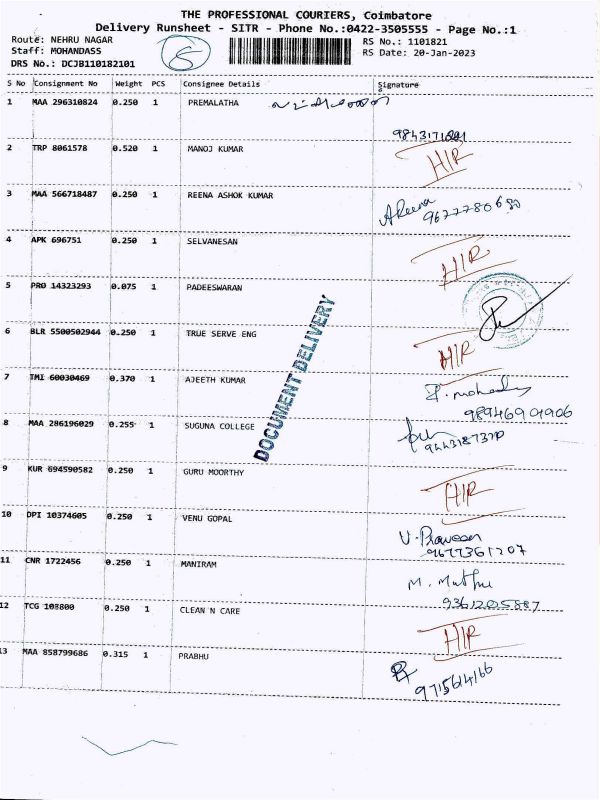 THE PROFESSIONAL COURIERS, Coimbatore
Delivery Runsheet - SITR - Phone No.:0422-3505555 - Page No.:1
Route: NEHRU NAGAR RS No.: 1101821
Staff: MOHANDASS RS Date: 20-Jan-2023
DRS No.: DCJB110182101
S No Consignment No Weight PCS Consignee Details Signature
1 MAA 296310824 0.250 1 PREMALATHA
2 TRP 8061578 0.520 1 MANOJ KUMAR HIR
3 MAA 566718487 0.250 1 REENA ASHOK KUMAR AReena
9677780680
4 APK 696751 0.250 1 SELVANESAN HIR
5 PRO 14323293 0.075 1 PADEESWARAN
6 BLR 5500502944 0.250 1 TRUE SERVE ENG HIR
DOCUMENT DELIVERY
7 TMI 60030469 0.370 1 AJEETH KUMAR
98946901906
8 MAA 286196029 0.255 1 SUGUNA COLLEGE
9 KUR 694590582 0.250 1 GURU MOORTHY HIR
10 DPI 10374605 0.250 1 VENU GOPAL V. Praveen
9677361207
11 CNR 1722456 0.250 1 MANIRAM M. Muthu
9361205887
12 TCG 108800 0.250 1 CLEAN N CARE HIR
13 MAA 858799686 0.315 1 PRABHU
9715614166